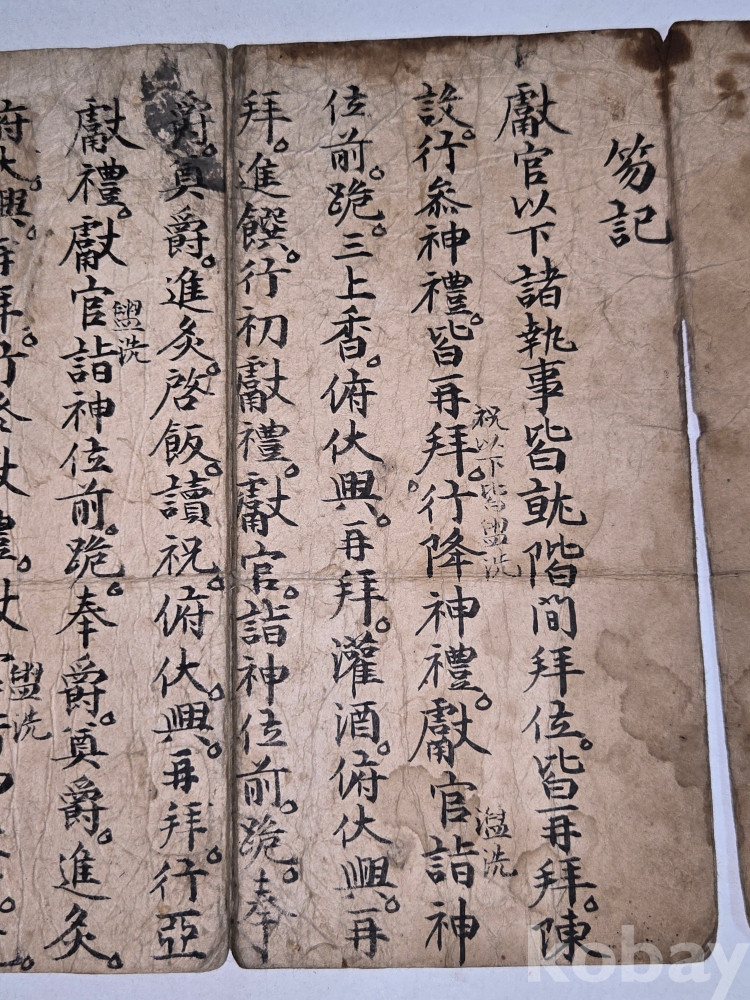 笏記
獻官以下諸執事皆就階間拜位。皆再拜。陳
設。行叅神禮。皆再拜。行降神禮。獻官詣神
祝以下皆盥洗
盥洗
位前。跪。三上香。俯伏興。再拜。灌酒。俯伏興。再
拜。進饌。行初獻禮。獻官。詣神位前。跪。奉
爵。奠爵。進炙。啓飯。讀祝。俯伏。興。再拜。行亞
獻禮。獻官詣神位前。跪。奉爵。奠爵。進炙。
盥洗
俯伏興。再拜。行終獻禮。獻
盥洗
kobay